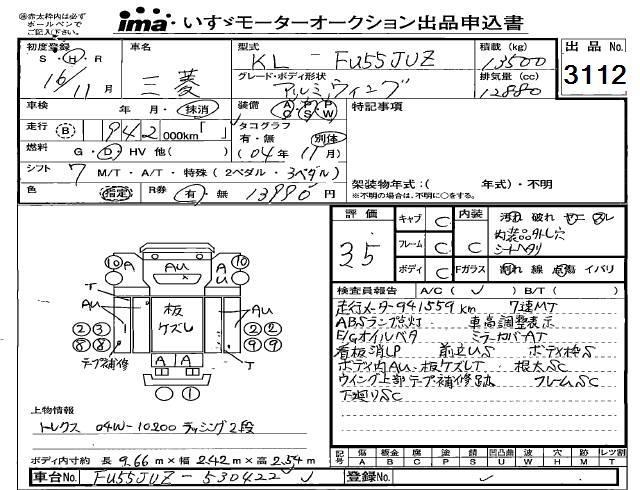 ㊟赤太枠内は必ず
ボールペンで
ご記入下さい。
ima・いすゞモーターオークション出品申込書
初度登録
S・H・R
16/11月
車名
三菱
型式
KL-FU55JUZ
グレード・ボディ形状
アルミウィング
積載(kg)
13500
排気量(cc)
12880
出品No.
3112
車検 年 月・抹消
装備 AC・PS・PW
特記事項
走行 B 942 000km「 」
タコグラフ
有・無 別体
(04年11月)
燃料 G・D・HV 他( )
シフト 7 M/T・A/T・特殊(2ペダル・3ペダル)
架装物年式:( 年式)・不明
※不明の場合は、不明に○をする。
色 指定 R券 有・無 13990円
評価
3.5
キャブ C
フレーム C
ボディ C
内装 C
Fガラス
汚れ 破れ ヤニ スレ
内装品外し穴
シートヘタリ
割れ 線 点傷 イバリ
検査員報告 A/C( ✓ ) B/T( )
走行メーター941559km 7速MT
ABSランプ点灯 車高調整表示
E/Gオイルベタ ミラーカバーAT
看板消しP 前立US ボディ枠S
ボディ内AU・板ケズレT・根太SC
ウイング上部テープ補修跡 フレームSC
下廻りSC
10 A AU 10
T
AU 板ケズレ AU
2 3 2 2
8 8 9 9
テープ補修 T
A A
1
上物情報
トレクス 04W-10200 ラッシング2段
ボディ内寸約 長 9.66m×幅 2.42m×高 2.54m
記号 傷A 板金B 腐C 塗P 錆S 凹凸曲U 波W 穴H 跡M レツ割T
車台No. FU55JUZ-530422
登録No.